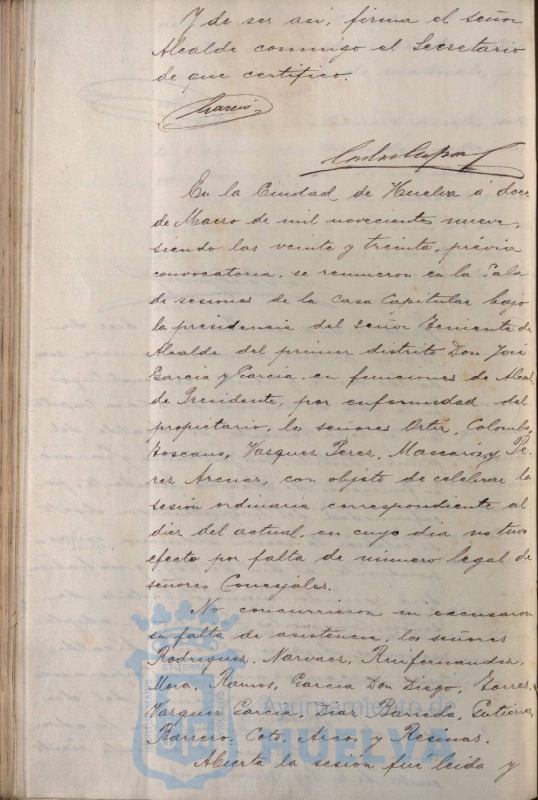 Y de ser asi, firma el señor
Alcalde conmigo el Secretario
de que certifico.
Garcia
En la Ciudad de Huelva á doce
de Marzo de mil novecientos nueve,
siendo las veinte y treinta, prévia
convocatoria, se reunieron en la Sala
de sesiones de la Casa Capitular, bajo
la presidencia del señor Teniente de
Alcalde del primer distrito Don José
Garcia y Garcia, en funciones de Alcal-
de Presidente, por enfermedad del
propietario, los señores Ortiz, Colombo,
Toscano, Vazquez Perez, Mascaros, y Pe-
rez Arenas, con objeto de celebrar la
sesión ordinaria correspondiente al
diez del actual, en cuyo dia no tuvo
efecto por falta de número legal de
señores Concejales.
No concurrieron ni escusaron
su falta de asistencia, los señores
Rodriguez, Narvaez, Ruifernandez,
Mora, Ramos, Garcia Don Diego, Torres,
Vazquez Garcia, Diaz Barreda, Gutierrez,
Barrero, Coto, Arco y Resinas.
Abierta la sesión fue leida y
Ayuntamiento de
HUELVA